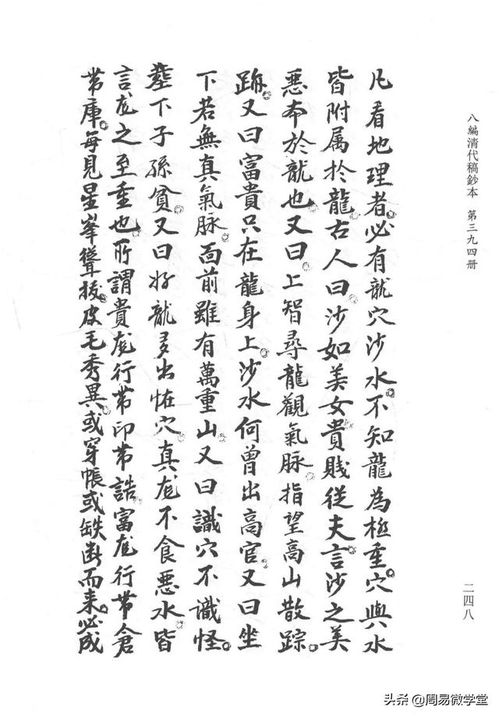 八編清代稿鈔本　第三九四冊
凡看地理者必有龍穴沙水不知龍為極重穴與水
皆附属於龍古人曰沙如美女貴賤従夫言沙之美
恶本於龍也又曰上智尋龍觀氣脉指望高山散踪
跡又曰富貴只在龍身上沙水何曾出高官又曰坐
下若無真氣脉面前雖有萬重山又曰識穴不識怪
塟下子孫貧又曰好龍多出怪穴真龙不食惡水皆
言龙之至重也所謂貴龙行帶印帶誥富龙行帶倉
帶庫每見星峯聳拔皮毛秀異或穿帳或缺断而来必成
二四八
头条@周易微学堂